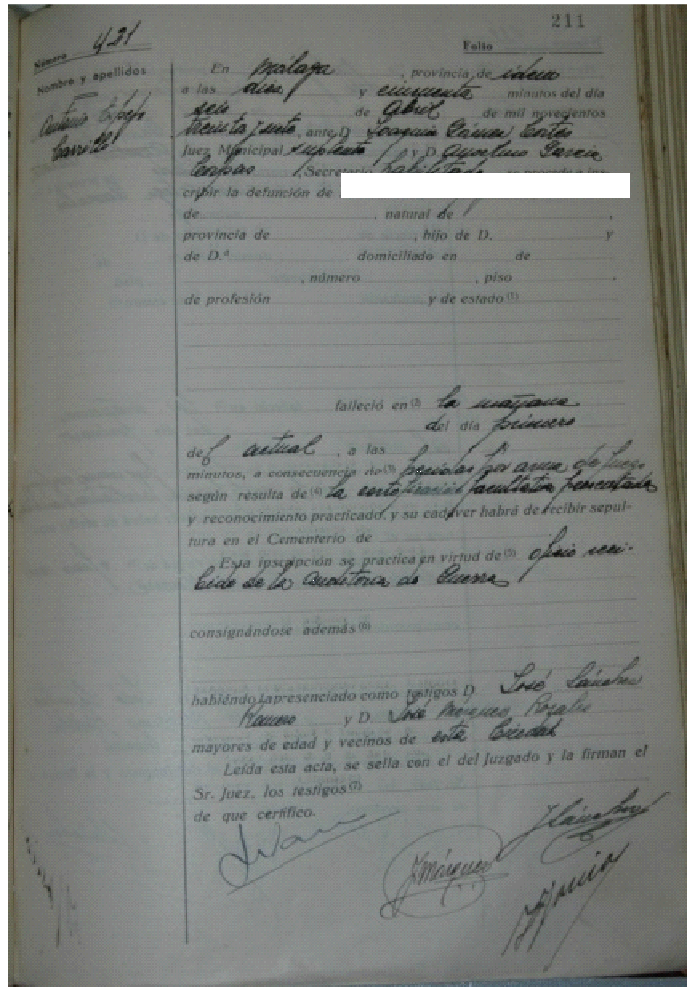 211
Número 421
Folio
Nombre y apellidos
Antonio Espejo
Carrillo
En Málaga, provincia de idem
a las doce y cincuenta minutos del día
seis de Abril de mil novecientos
treinta y siete, ante D. Joaquín Gómez Cortés
Juez Municipal suplente y D. García
Corpas, Secretario habilitado
cribir la defunción de
de , natural de ,
provincia de , hijo de D. y
de D.ª domiciliado en de
, número , piso .
de profesión y de estado (1)
falleció en (2) la mañana
del día primero
del actual, a las
minutos, a consecuencia de (3) heridas por arma de fuego
según resulta de (4) la certificación facultativa presentada
y reconocimiento practicado, y su cadáver habrá de recibir sepul-
tura en el Cementerio de
Esta inscripción se practica en virtud de (5) oficio reci-
bido de la Auditoria de Guerra
consignándose además (6)
habiéndola presenciado como testigos D. José Sánchez
Romero y D. José Márquez
mayores de edad y vecinos de esta Ciudad
Leída esta acta, se sella con el del Juzgado y la firman el
Sr. Juez, los testigos (7)
de que certifico.
JSánchez
JMárquez